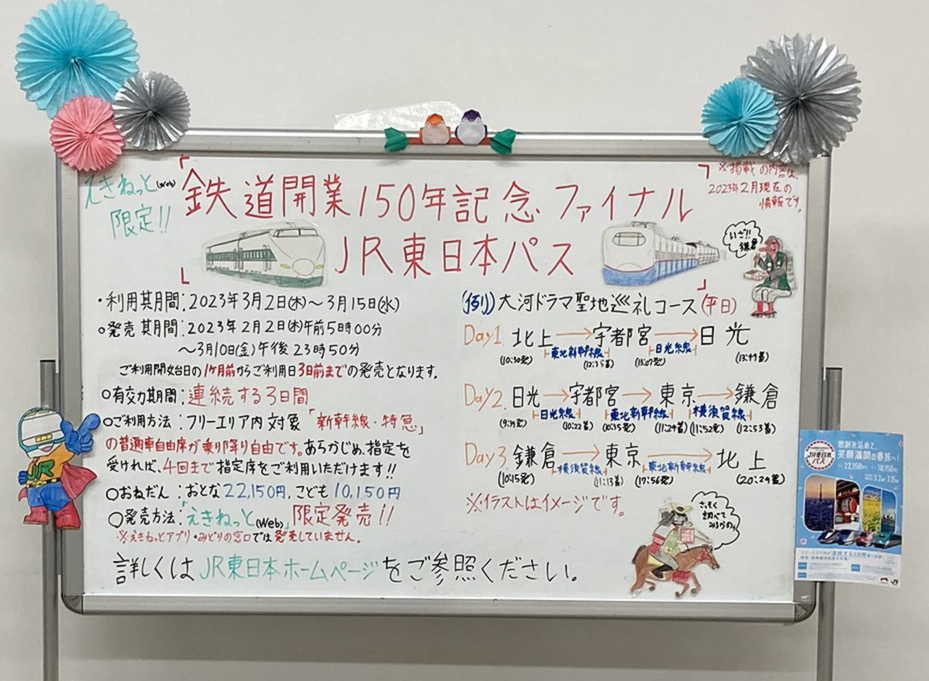 えきねっと(Web)
限定!!
「鉄道開業150年記念 ファイナル
JR東日本パス」
※掲載の内容は、
2023年2月現在の
情報です。
いざ!!
鎌倉
・利用期間:2023年3月2日(木)~3月15日(水)
○発売期間:2023年2月2日(木)午前5時00分
~3月10日(金)午後23時50分
ご利用開始日の1ヶ月前からご利用日3日前までの発売となります。
○有効期間:連続する3日間
○ご利用方法:フリーエリア内 対象「新幹線・特急」
の普通車自由席が乗り降り自由です。あらかじめ、指定を
受ければ、4回まで指定席をご利用いただけます!!
○おねだん:おとな22,150円、こども10,150円
○発売方法:「えきねっと(Web)」限定発売!!
※えきねっとアプリ・みどりの窓口では発売していません。
詳しくはJR東日本ホームページをご参照ください。
(例)大河ドラマ聖地巡礼コース(平日)
Day1 北上→宇都宮→日光
東北新幹線 日光線
Day2. 日光→宇都宮→東京→鎌倉
日光線 東北新幹線 横須賀線
(10:22着) (11:52発) (12:53着)
Day3 鎌倉→東京→北上
横須賀線 東北新幹線
(10:15発) (11:13着) (17:56発) (20:29着)
※イラストはイメージです。
JR
JR東日本
パス